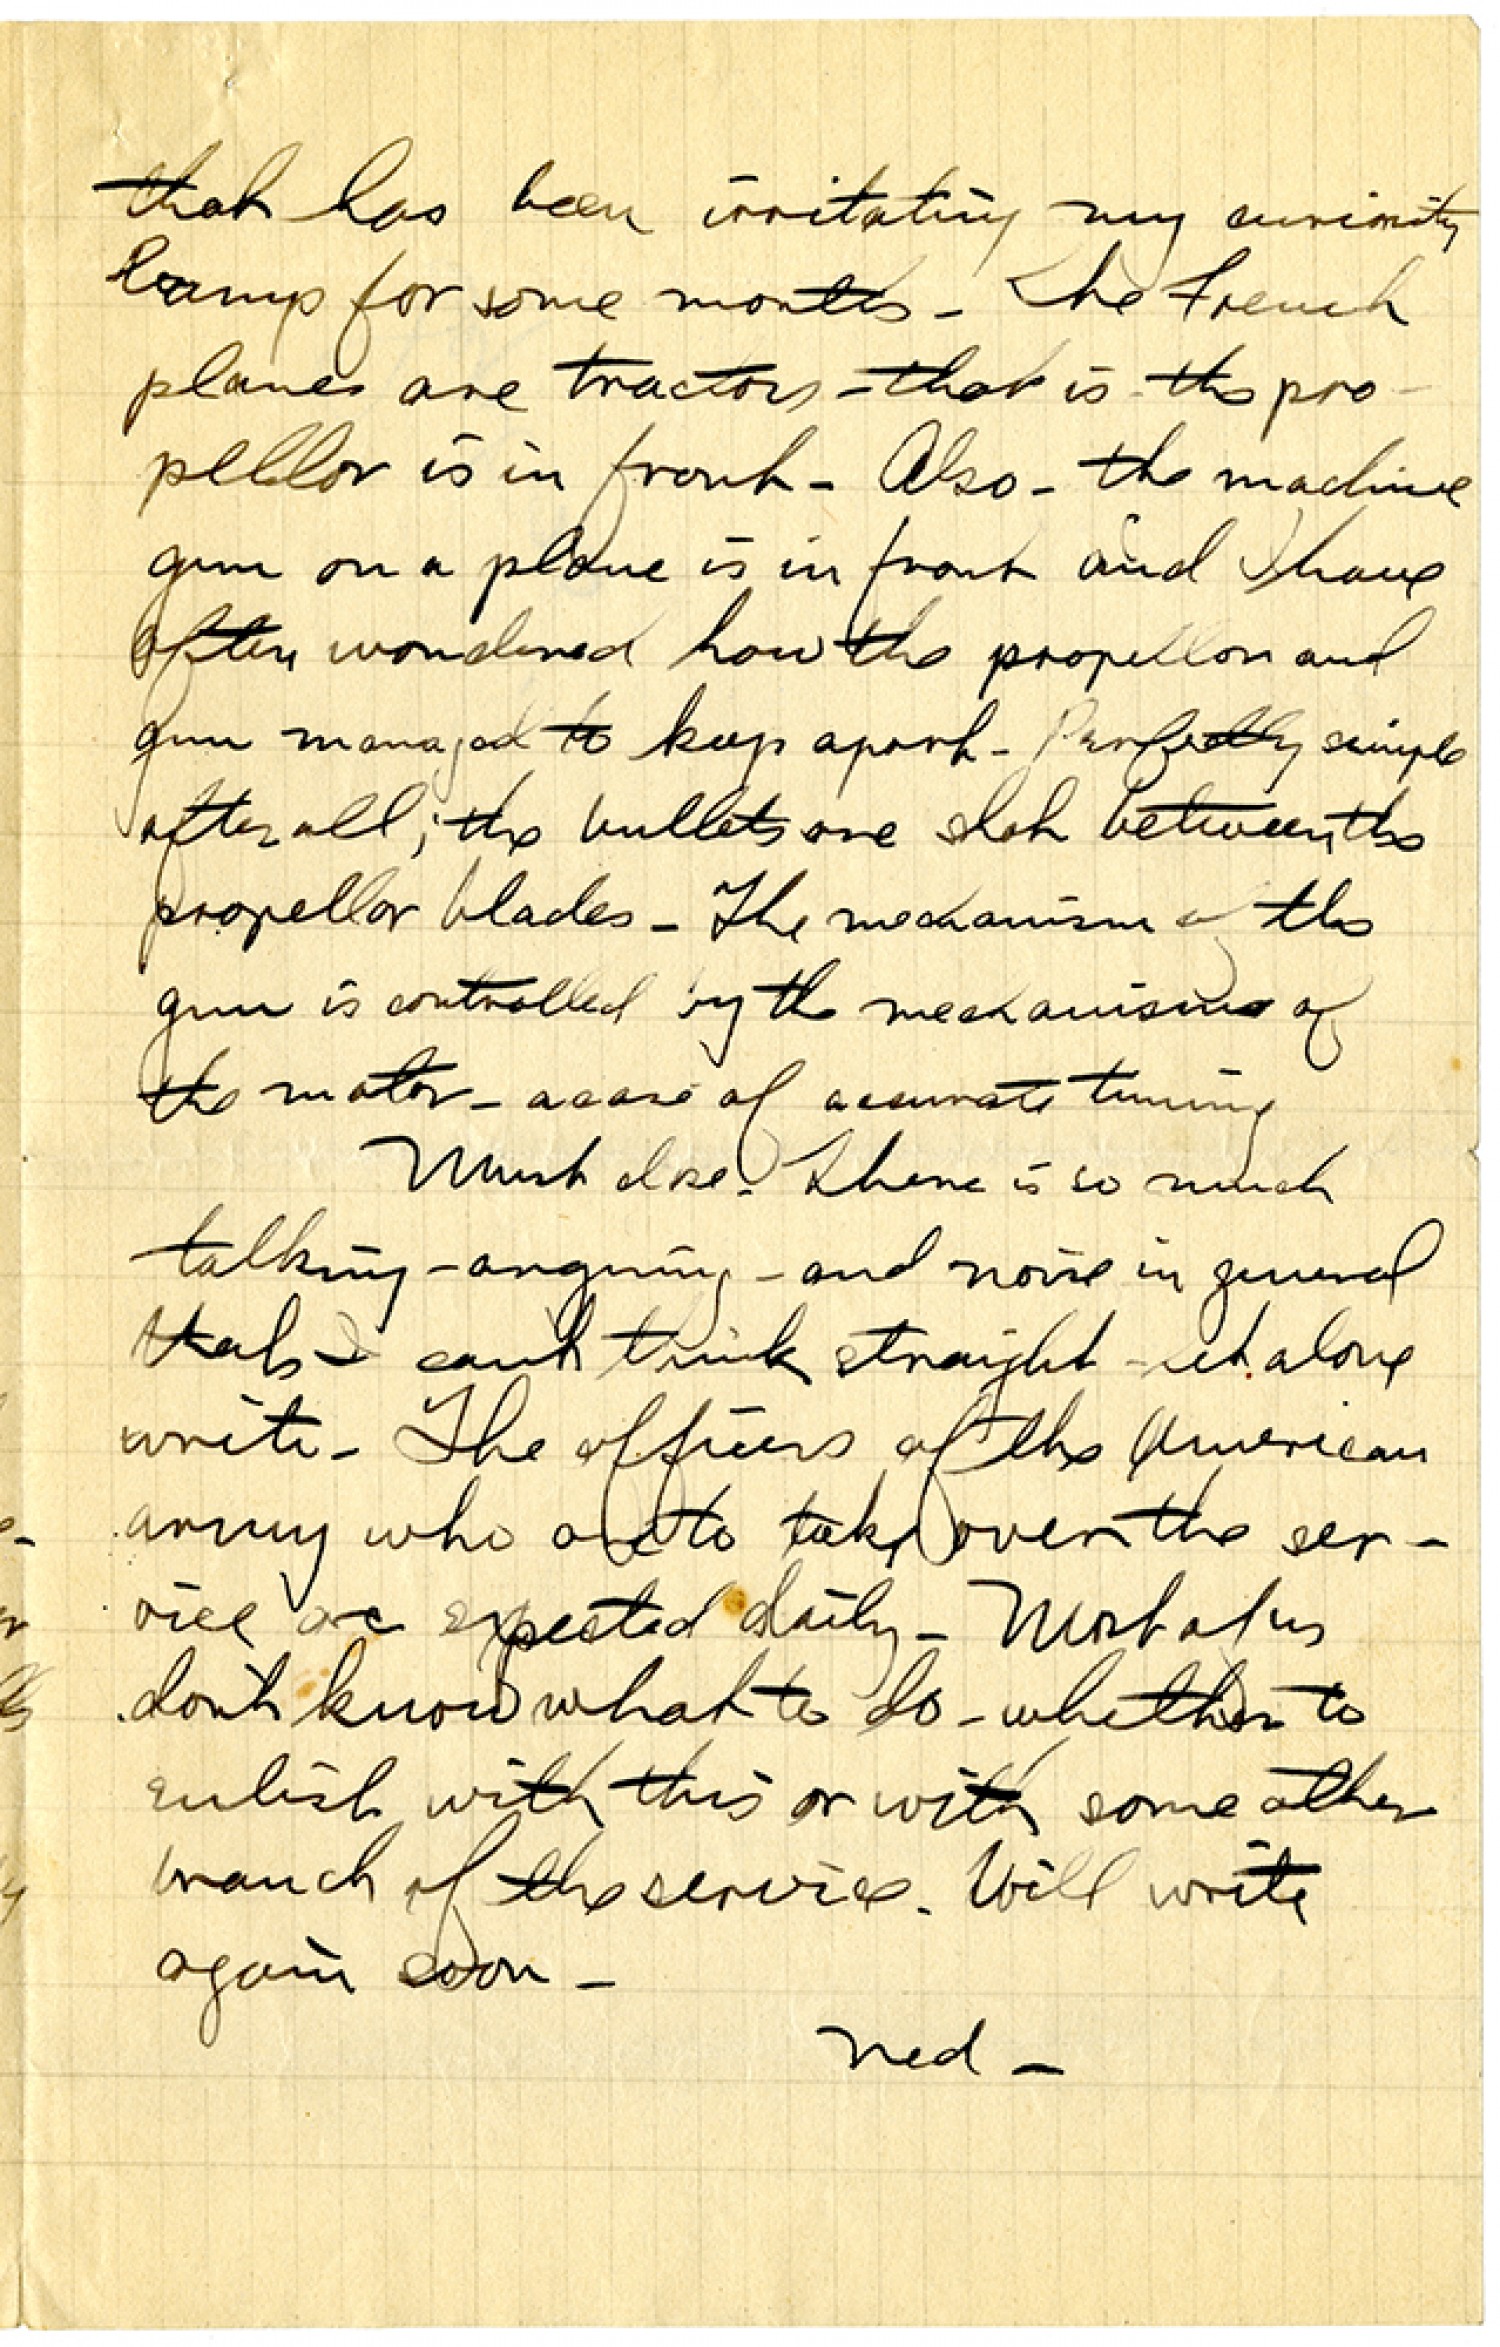 that has been irritating my curiosity
bump for some months - The French
planes are tractors - that is - the pro-
pellor is in front - Also - the machine
gun on a plane is in front and I have
often wondered how the propellor and
gun managed to keep apart - Perfectly simple
after all; the bullets are shot between the
propellor blades - The mechanism of the
gun is controlled by the mechanism of
the motor - a case of accurate timing
Must close. There is so much
talking - arguing - and noise in general
that I can't think straight - let alone
write - The officers of the American
army who are to take over the ser-
vice are expected daily - Most of us
don't know what to do - whether to
enlist with this or with some other
branch of the service. Will write
again soon -
Ned -